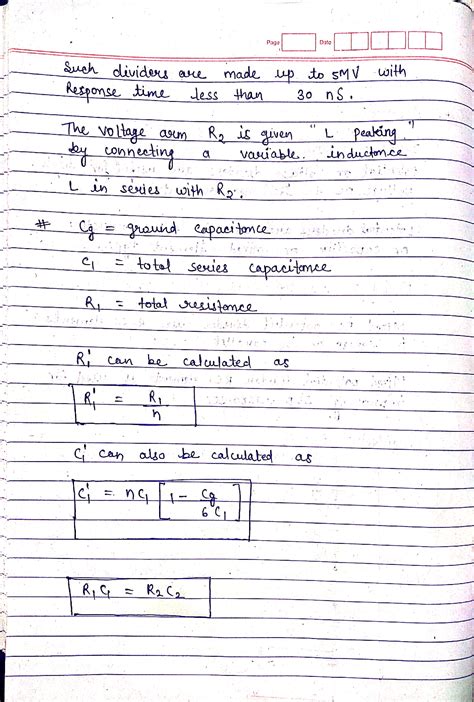 Page Date
Such dividers are made up to 5MV with
Response time less than 30 nS.
The voltage arm R₂ is given "L peaking"
by connecting a variable inductance
L in series with R₂.
# Cg = ground capacitance
C₁ = total series capacitance
R₁ = total resistance
R₁' can be calculated as
R₁' = R₁/n
C₁' can also be calculated as
C₁' = nC₁ [1 - Cg/6C₁]
R₁C₁ = R₂C₂